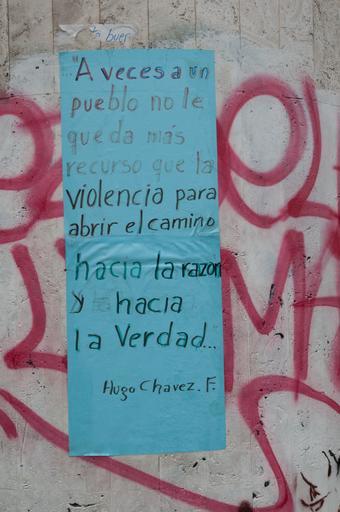 "A veces a un
pueblo no le
queda más
recurso que la
violencia para
abrir el camino
hacia la razón
y hacia
la Verdad...
Hugo Chavez. F.